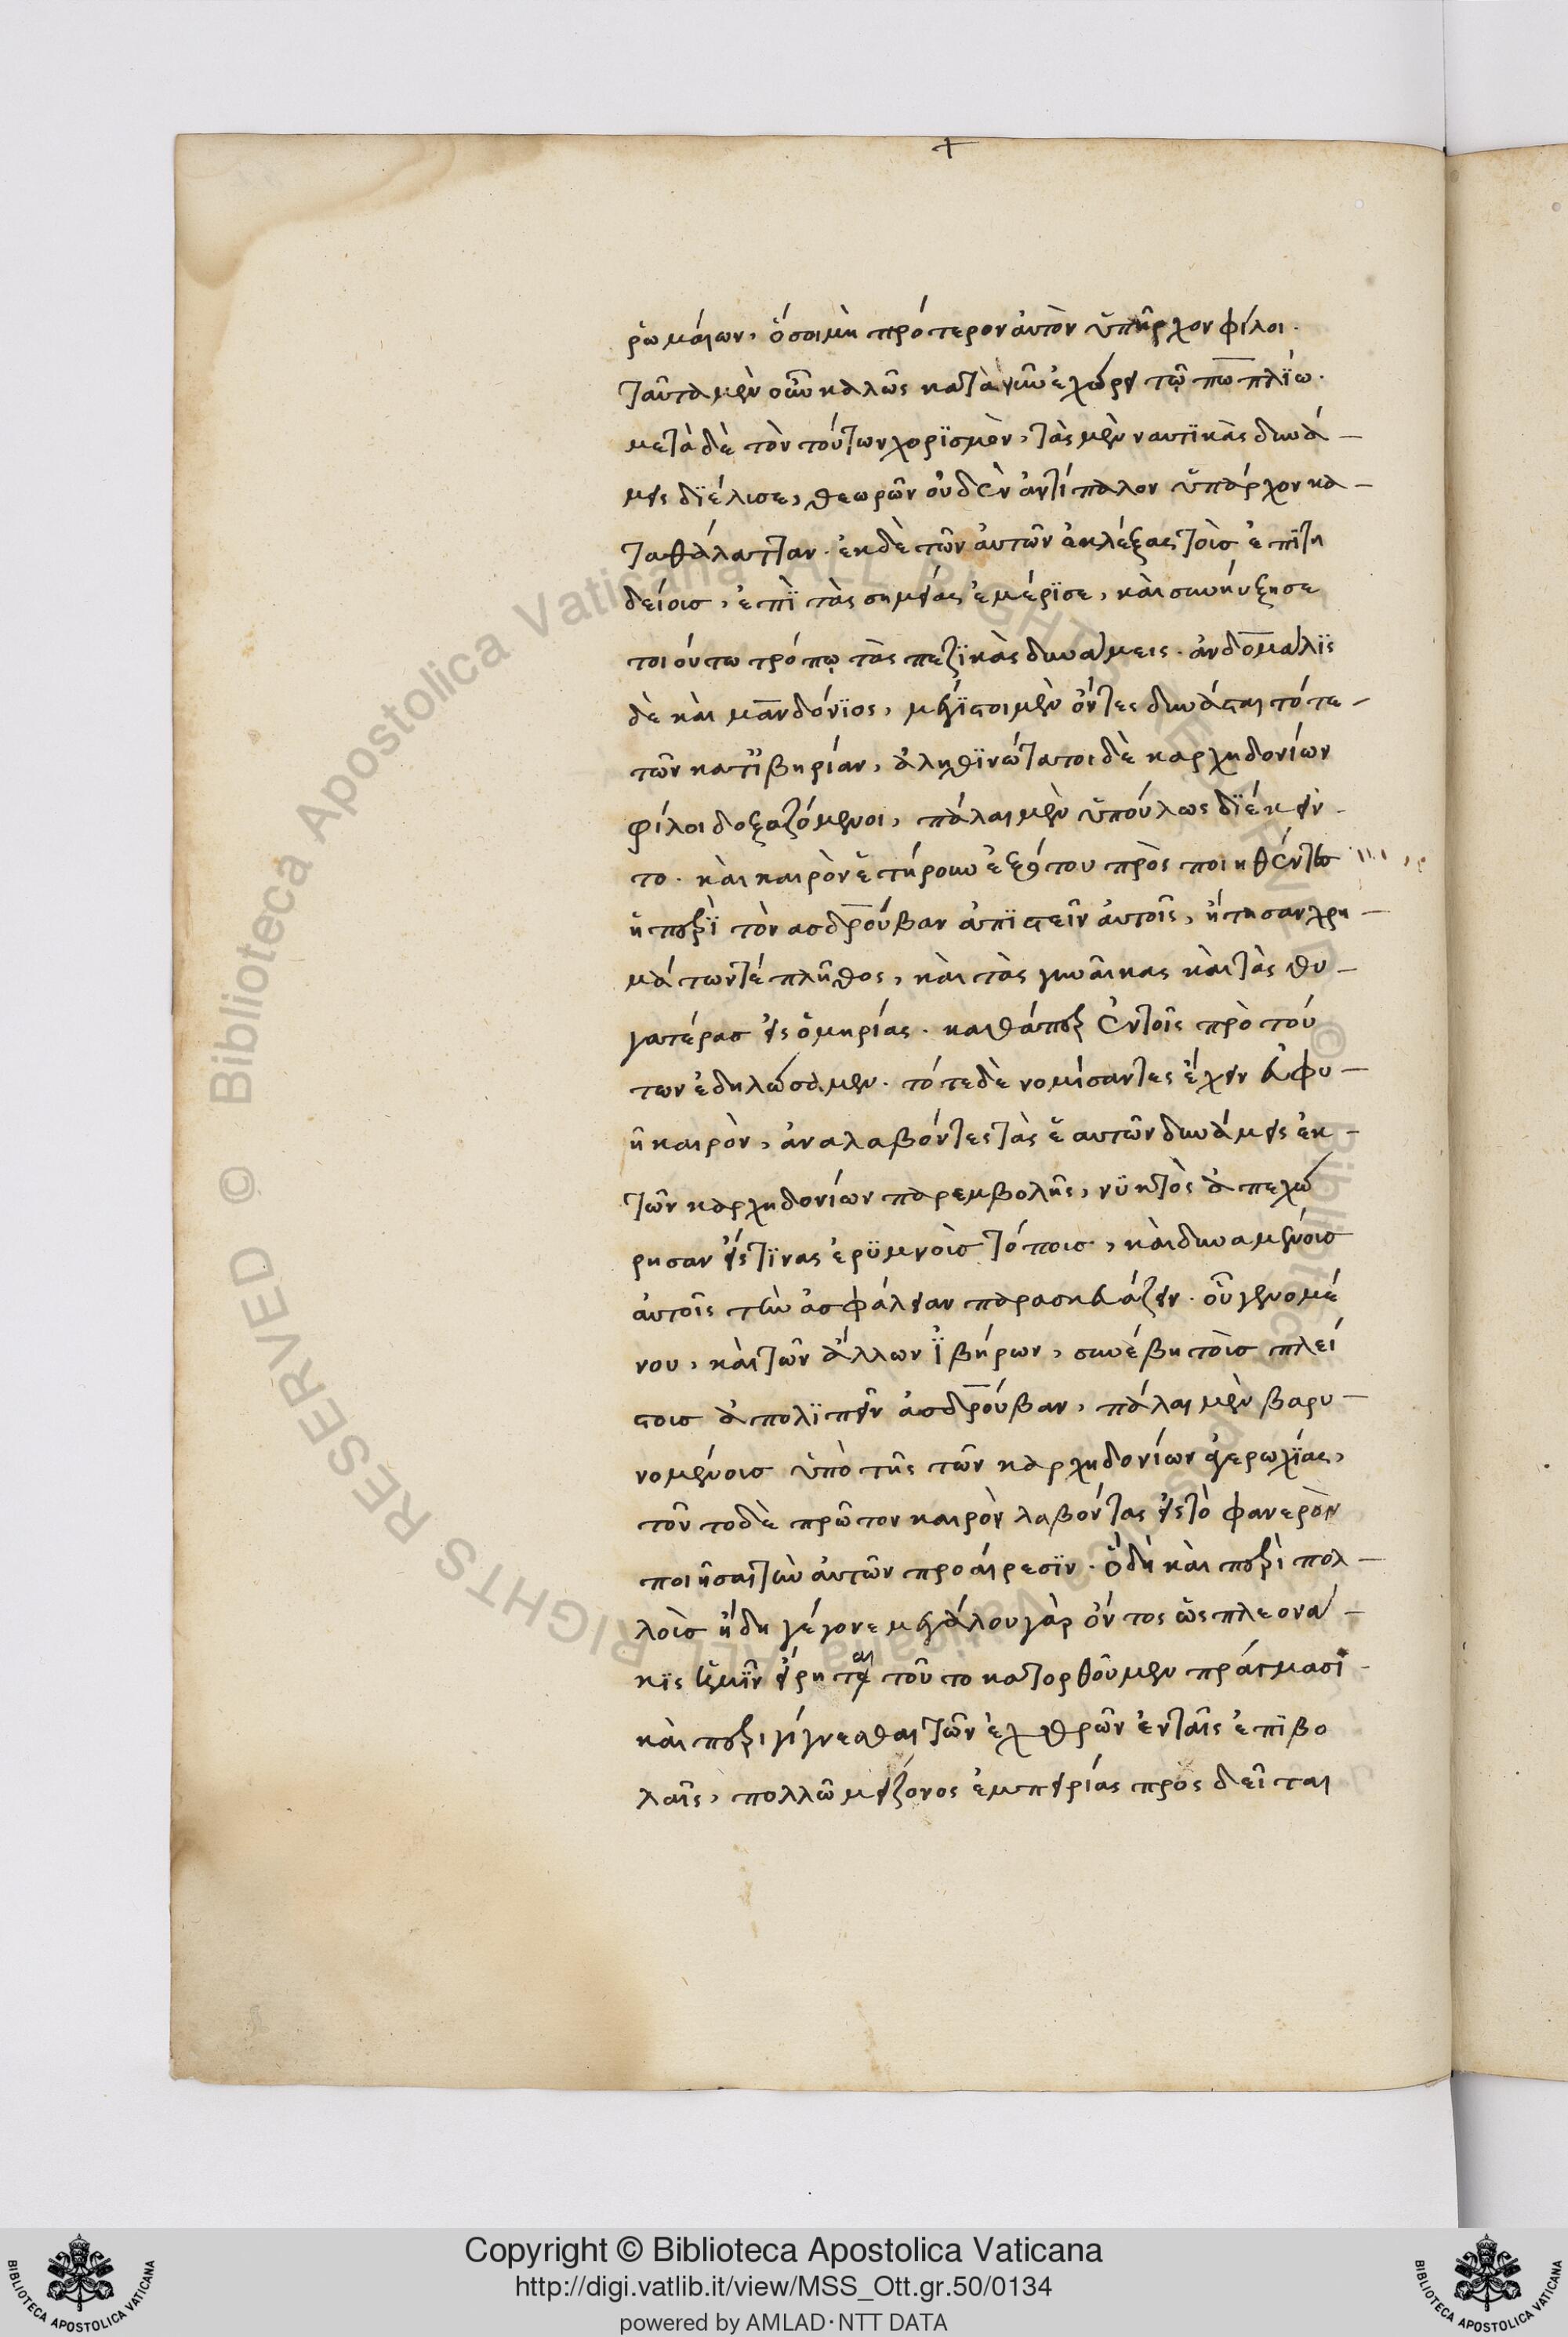 +
ῥωμάιων, ὅσοι μὴ πρότερον ἀυτὸν ὑπῆρχον φίλοι.
ταῦτα μὲν οὖν καλῶς κατὰ νοῦν ἐχώρει τῶ πωπλίω.
μετὰ δὲ τὸν τούτων χορϊσμὸν, τὰς μὲν ναυτϊκὰς δυνά-
μεις δϊέλισε, θεωρῶν οὐδὲν ἀντίπαλον ὑπάρχον κα-
ταθάλατταν. ἐκ δὲ τῶν ἀυτῶν ἐκλέξας τοὶσ ἐπϊτη
δείοισ, ἐπὶ τὰς σημείας ἐμέρϊσε, καὶ συνήυξησε
τοιούτω τρόπῳ τὰς πεζϊκὰς δυνάμεις. ἀνδομαλϊς
δὲ καὶ μανδόνϊος, μέγϊστοι μὲν ὄντες δυνάσται τότε
τῶν κατ ἰβηρίαν, ἀληθϊνώτατοι δὲ καρχηδονίων
φίλοι δοξαζόμενοι, πάλαι μὲν ὑπούλως δϊέκειν-
το. καὶ καιρὸν ἐτήρουν ἐξότου πρὸς ποιηθέντεσ
ἡ περὶ τὸν ασδρούβαν ἀπϊστεῖν ἀυτοῖς, ἤτησαν χρη-
μάτων τέ πλῆθος, καὶ τὰς γυνᾶικας καὶ τὰς θυ-
γατέρασ εἰς ὁμηρίας. καθάπερ ἐν τοῖς πρὸ τού
των ἐδηλώσαμεν. τότε δὲ νομίσαντες ἔχειν ἐυφυ-
ῆ καιρὸν, ἀναλαβόντες τὰς ἑαυτῶν δυνάμεις ἐκ-
τῶν καρχηδονίων παρεμβολῆς, νϋκτὸς ἀπεχώ
ρησαν εἴς τϊνας ἐρϋμνοὶσ τόποισ, καὶ δυναμένοισ
ἀυτοῖς τὴν ἀσφάλειαν παρασκευάζειν. οὗ γενομέ
νου, καὶ τῶν ἄλλων ἰβήρων, συνέβη τοὶσ πλεί
στοισ ἀπολϊπεῖν ἀσδρούβαν, πάλαι μὲν βαρυ-
νομένοισ ὑπὸ τῆς τῶν καρχηδονίων ἀγερωχϊας,
τοῦτο δὲ πρῶτον καιρὸν λαβόντας εἰς τὸ φανερὸν
ποιῆσαι τὴν ἀυτῶν προάιρεσϊν. ὃ δὴ καὶ περὶ πολ-
λοὶσ ἤδη γέγονε μεγάλου γὰρ ὄντος ὡς πλεονά-
κϊς ἡμῖν εἴρηται τοῦ το κατορθοῦμεν πράγμασι-
καὶ περιγίγνεσθαι τῶν ἐχθρῶν ἐν ταῖς ἐπϊβο
λαῖς, πολλῶ μείζονος ἐμπειρίας πρὸς δεῖται
Copyright © Biblioteca Apostolica Vaticana
http://digi.vatlib.it/view/MSS_Ott.gr.50/0134
powered by AMLAD·NTT DATA